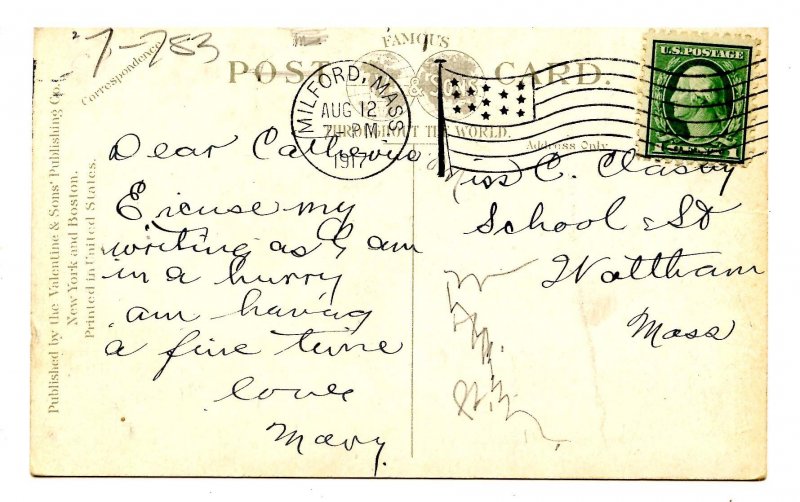 7-783
Correspondence
FAMOUS
POST CARD.
THROUGHOUT THE WORLD.
Address Only
MILFORD, MASS
AUG 12
7 PM
1917
U.S. POSTAGE
Published by the Valentine & Sons' Publishing Co.
New York and Boston.
Printed in United States.
Dear Catherine
Excuse my
writing as I am
in a hurry
am having
a fine time
love
Mary.
Miss C. Clasby
School St
Waltham
Mass